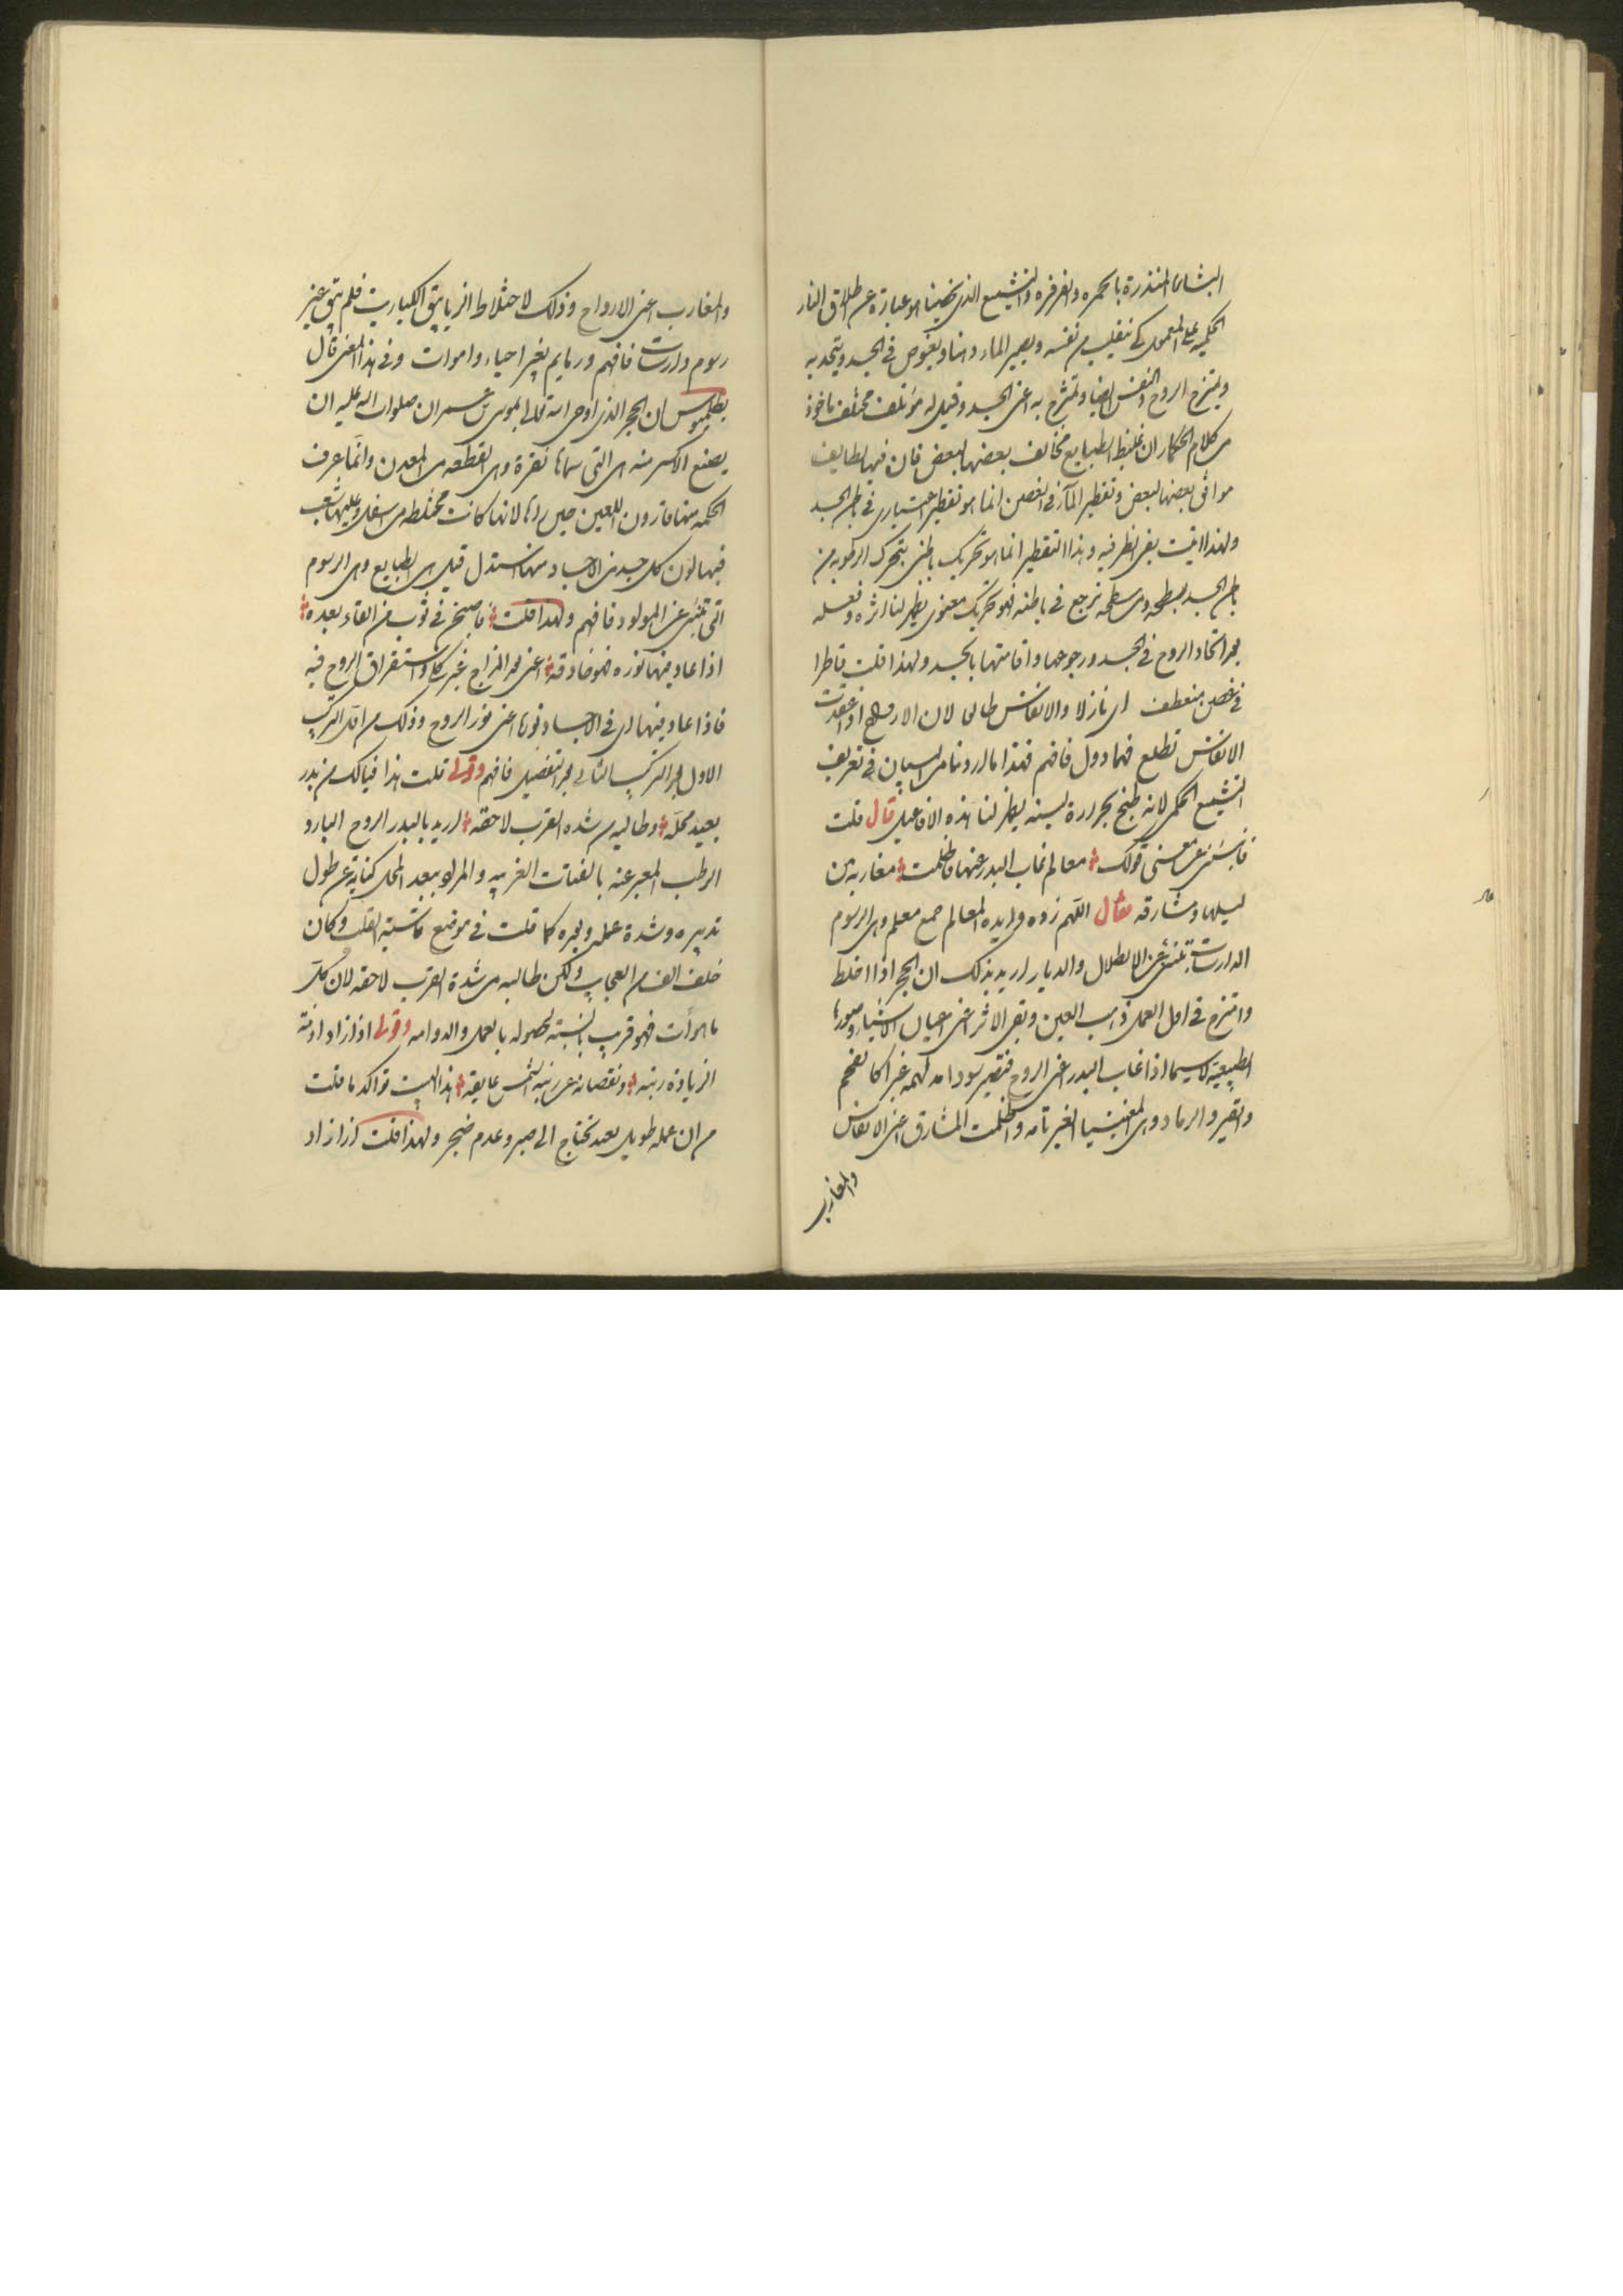 البشاى المنذرة بالحمره والفرفره والتشييع الذى يخصنا هو عبارة عن طلاق النار
الحكميه على المعمول كى ينقلب من نفسه ويصير الماء دهنا ويغوص فى الجسد ويتحد به
ويمتزج الروح النفس ايضا ويمتزج به اعنى الجسد وقيل له مؤتلف مختلف ماخوذ
من كلام الحكماء ان غليظ الطبايع مخالف بعضها لبعض فان فيها لطايف
موافق بعضها لبعض وتقطير المآء فى الغصن انما هو تقطير فى باطن الجسد
ولهذا يبقى النظر فيه وهذا التقطير انما هو تحريك باطنى يتحرك الرطوبه من
باطن الجسد لسطحه ومن سطحه ترجع فى باطنه فهو تحريك معنوى يظهر لنا اثره وفعله
بعد اتحاد الروح فى الجسد ورجوعها واقامتها بالجسد ولهذا قلت قاطرا
فى غصن منعطف اى نازلا والانفاس طالعا لان الارواح اذا
الانفاس تطلع فهما دول فافهم فهذا ما اردنا من البيان فى تعريف
التشييع الحكمى لانه طبخ بحرارة لينه يظهر لنا هذه الافاعيل قال قلت
عن معنى قولك معالم غاب البدر عنها فاظلمت مغاربه من
ليلها ومشارقه فقال اللهم زده وايده المعالم جمع معلم وهى الرسوم
الدارسات تنبئ عن الاطلال والديار اريد بذلك ان الحجر اذا اختلط
وامتزج فى اول العمل ذهب العين وبقى الاثر اعنى اعيان الاشياء وصورها
الطبيعية لا سيما اذا غاب البدر اعنى الروح فتصير سودا مدلهمه غبرا كالفحم
والقير والرماد وهى المغنيسيا الغير تامه واظلمت المشارق اعنى الانفاس
والمغارب
والمغارب اعنى الارواح وذلك لاختلاط الزيابيق الكباريت فلم يبق غير
رسوم دارسات فافهم ورمايم بغير احياء واموات وفى هذا المعنى قال
بطلميوس ان الحجر الذى اوحى الله تعالى الى موسى بن عمران صلوات الله عليه ان
يصنع الاكسير منه هى التى سماها نقرة وهى القطعه من المعدن وانما عرف
الحكمه منها قارون اللعين حين راها لانها كانت مختلطه من اسفل وعليها شعب
فيها لون كل جسد من الاجساد منها استدل قيل هى الطبايع وهى الرسوم
التى تنبئ عن المولود فافهم ولهذا قلت فاصبح فى ثوب من القاء بعده
اذا عاد فيها نوره فهو خارقه اعنى بعد المزاج غير كالح واستغراق الروح فيه
فاذا عاد فيها اى فى الاجساد نورها اعنى نور الروح وذلك من اول التركيب
الاول بعد التركيب الثانى بعد التفصيل فافهم وقولى قلت هذا فيا لك من بدر
بعيد محله وطالبه من شده القرب لاحقه اريد بالبدر الروح البارد
الرطب المعبر عنه بالفتات الغربيه والمراد ببعد المحل كناية عن طول
تدبيره وشدة عمله وبعده كما قلت فى موضع وكان
خلف الف من الحجاب ولكن طالبه من شدة القرب لاحقه لان كل
ما هو آت فهو قريب بالنسبة لحصوله بالعمل والدوامه وقولى اذا زاد اذنته
الزيادة رتبه ونقصانه عن رتبة التم عايقه هذا البيت تواكد ما قلت
من ان عمله طويل بعيد يحتاج الى صبر وعدم ضجر ولهذا قلت اذا زاد